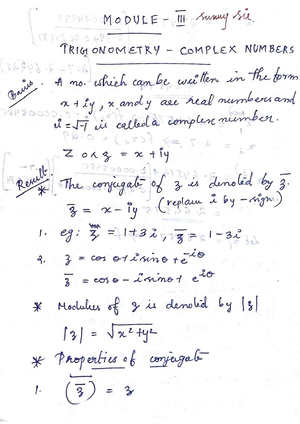 MODULE - III Sunny Sir.
TRIGONOMETRY - COMPLEX NUMBERS
Basics . A no. which can be written in the form
x + iy, x and y are real numbers and
i = √-1 is called a complex number.
Z or z = x + iy
Result
* The conjugate of z is denoted by z̅.
z̅ = x - iy (replace i by - sign)
1. eg: z = 1+3i, z̅ = 1-3i
2. z = cosθ + i sinθ + e^-iθ
z̅ = cosθ - i sinθ + e^iθ
* Modulus of z is denoted by |z|
|z| = √x²+y²
* Properties of conjugate
1. (z̅)‾ = z